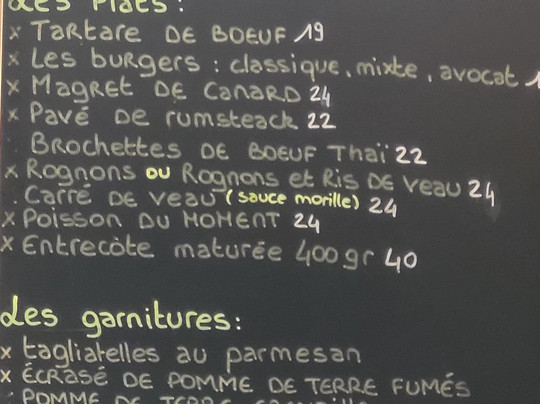 Les Plats :
x TaRtare DE BOEUF 19
x Les burgers : classique, mixte, avocat
x MagRet DE CanaRD 24
x Pavé De rumsteack 22
Brochettes DE BOEUF Thaï 22
x Rognons ou Rognons et Ris DE Veau 24
. Carré DE veau (sauce morille) 24
x Poisson DU MOMENT 24
x Entrecôte maturée 400gr 40
Les garnitures :
x tagliatelles au parmesan
x ÉCRasé DE POMME DE TERRE FUMÉS
POMME DE TERRE